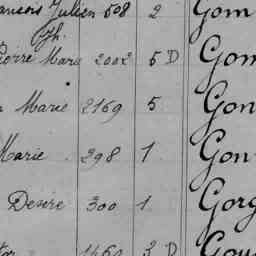 Julien 508 2 Gom
Jh.
Pierre Marie 2002 5 D Gom
Marie 2169 5 Gon
Marie 298 1 Gon
Desire 300 1 Gorg
3 D Gou